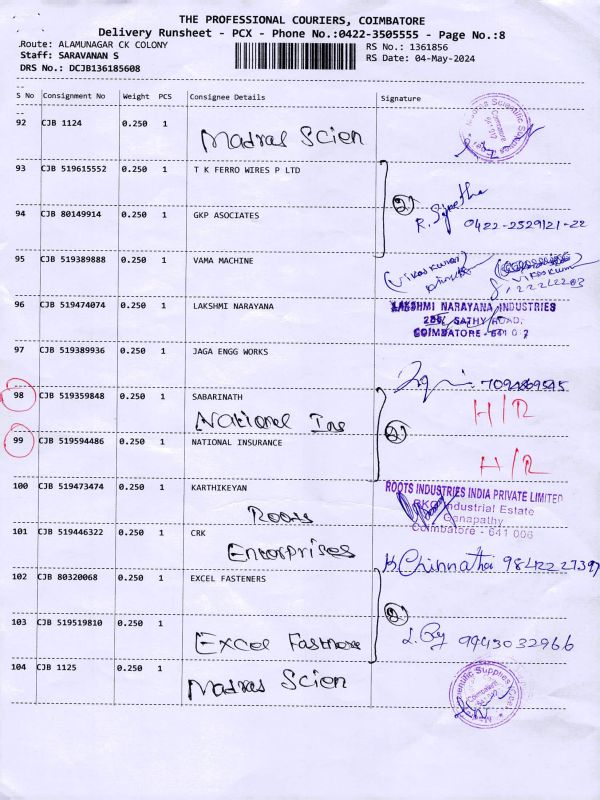 THE PROFESSIONAL COURIERS, COIMBATORE
Delivery Runsheet - PCX - Phone No.:0422-3505555 - Page No.:8
Route: ALAMUNAGAR CK COLONY
RS No.: 1361856
Staff: SARAVANAN S
RS Date: 04-May-2024
DRS No.: DCJB136185608
S No Consignment No Weight PCS Consignee Details Signature
92 CJB 1124 0.250 1
Madras Scien
93 CJB 519615552 0.250 1 T K FERRO WIRES P LTD
94 CJB 80149914 0.250 1 GKP ASOCIATES
2
0422-2529121-22
95 CJB 519389888 0.250 1 VAMA MACHINE
96 CJB 519474074 0.250 1 LAKSHMI NARAYANA
LAKSHMI NARAYANA INDUSTRIES
SATHY ROAD,
COIMBATORE -
97 CJB 519389936 0.250 1 JAGA ENGG WORKS
98 CJB 519359848 0.250 1 SABARINATH
National Ins
H/R
2
99 CJB 519594486 0.250 1 NATIONAL INSURANCE
H/R
100 CJB 519473474 0.250 1 KARTHIKEYAN
Roots
ROOTS INDUSTRIES INDIA PRIVATE LIMITED
RKG Industrial Estate
Ganapathy
Coimbatore - 641 006
101 CJB 519446322 0.250 1 CRK
Enterprises
K. Chinnathai
102 CJB 80320068 0.250 1 EXCEL FASTENERS
2
103 CJB 519519810 0.250 1
Excel Fastners
9943032966
104 CJB 1125 0.250 1
Madras Scien